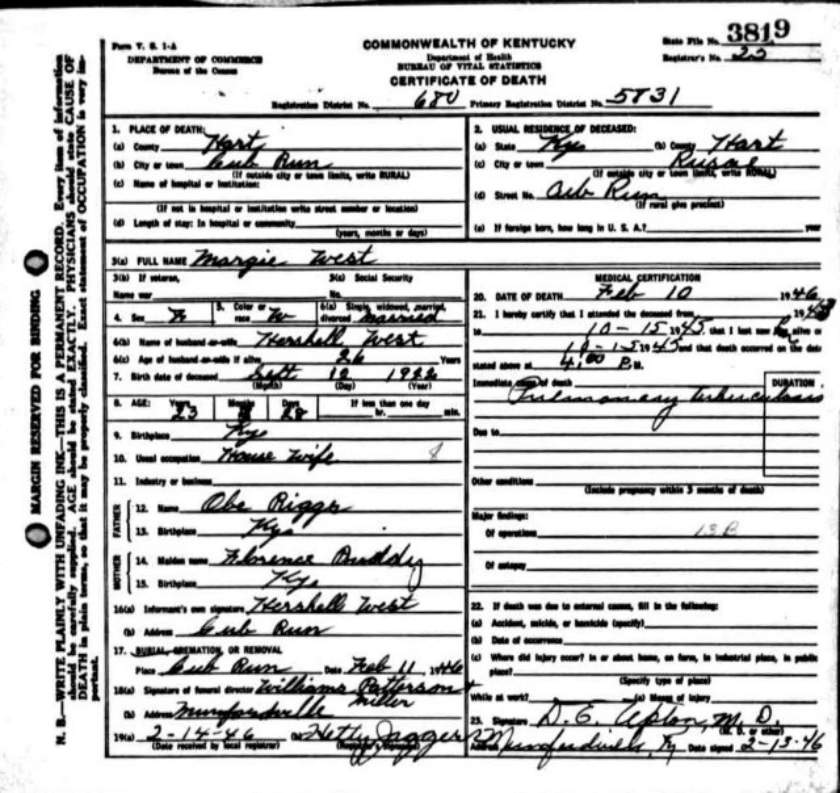 Form V. S. 1-A
DEPARTMENT OF COMMERCE
Bureau of the Census
COMMONWEALTH OF KENTUCKY
Department of Health
BUREAU OF VITAL STATISTICS
CERTIFICATE OF DEATH
State File No. 3819
Registrar's No. 22
Registration District No. 680 Primary Registration District No. 5831
MARGIN RESERVED FOR BINDING
N. B.—WRITE PLAINLY WITH UNFADING INK—THIS IS A PERMANENT RECORD. Every item of information
should be carefully supplied. AGE should be stated EXACTLY. PHYSICIANS should state CAUSE OF
DEATH in plain terms, so that it may be properly classified. Exact statement of OCCUPATION is very im-
portant.
1. PLACE OF DEATH:
(a) County Hart
(b) City or town Cub Run
(If outside city or town limits, write RURAL)
(c) Name of hospital or institution:
(If not in hospital or institution write street number or location)
(d) Length of stay: In hospital or community
(years, months or days)
2. USUAL RESIDENCE OF DECEASED:
(a) State Ky (b) County Hart
(c) City or town Rural
(If outside city or town limits, write RURAL)
(d) Street No. Cub Run
(If rural give precinct)
(e) If foreign born, how long in U. S. A.? year
3(a) FULL NAME Margie West
3(b) If veteran,
Name war
3(c) Social Security
No.
4. Sex F 5. Color or race W 6(a) Single, widowed, married, divorced married
6(b) Name of husband or wife Hershell West
6(c) Age of husband or wife if alive 26 Years
7. Birth date of deceased Sept 12 1922
(Month) (Day) (Year)
8. AGE: Years 23 Months Days 28 If less than one day
hr. min.
9. Birthplace Ky
10. Usual occupation House Wife
11. Industry or business
FATHER
12. Name Obe Rigger
13. Birthplace Ky
MOTHER
14. Maiden name Florence Buddy
15. Birthplace Ky
16(a) Informant's own signature Hershell West
(b) Address Cub Run
17. BURIAL, CREMATION, OR REMOVAL
Place Cub Run Date Feb 11, 1946
18(a) Signature of funeral director Williams Patterson +
Miller
(b) Address Munfordville
19(a) 2-14-46 (b) Hetty Jaggers
(Date received by local registrar) (Registrar's signature)
MEDICAL CERTIFICATION
20. DATE OF DEATH Feb 10 1946
21. I hereby certify that I attended the deceased from 1945
to 10-15 1945, that I last saw alive on
10-15 1945 and that death occurred on the date
stated above at 4:00 P.M.
Immediate cause of death DURATION
Pulmonary tuberculosis
Due to
Other conditions
(Include pregnancy within 3 months of death)
Major findings:
Of operations 13B
Of autopsy
22. If death was due to external causes, fill in the following:
(a) Accident, suicide, or homicide (specify)
(b) Date of occurrence
(c) Where did injury occur? In or about home, on farm, in industrial place, in public
place?
(Specify type of place)
While at work? (e) Means of injury
23. Signature D. E. Upton, M. D.
(M. D. or other)
Address Munfordville, Ky Date signed 2-13-46